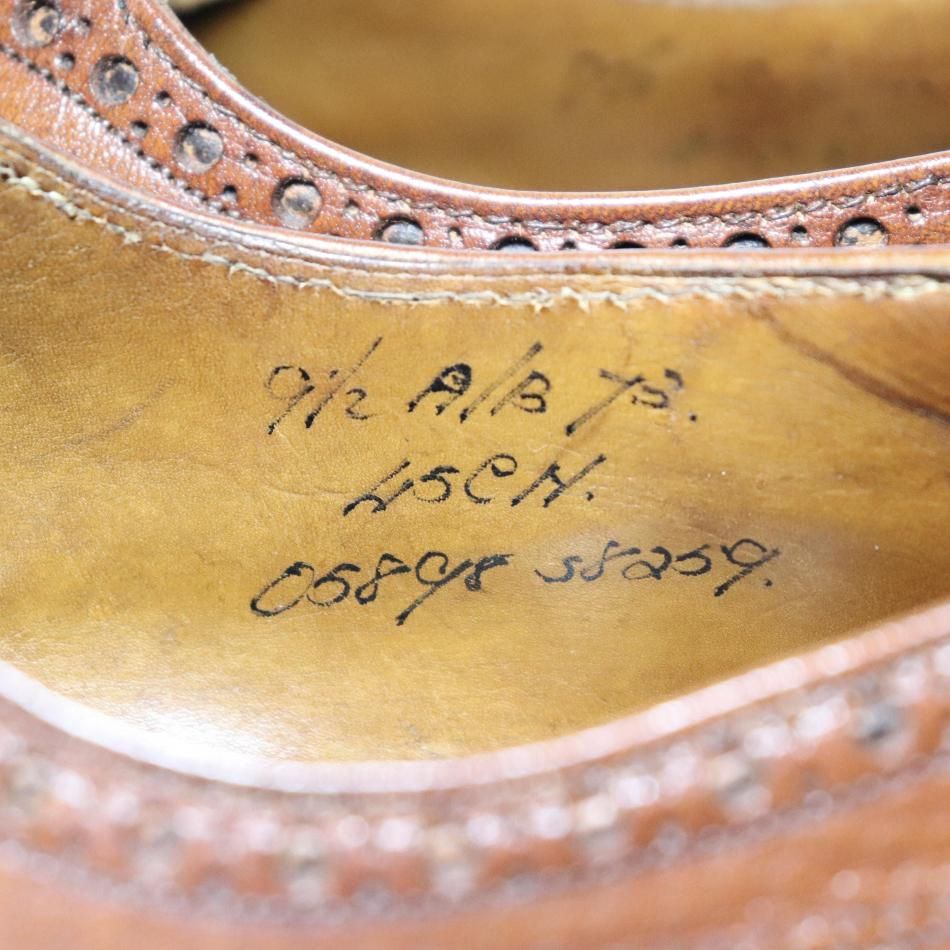 9½ A/B 73.
LSCH.
05898 S8259.